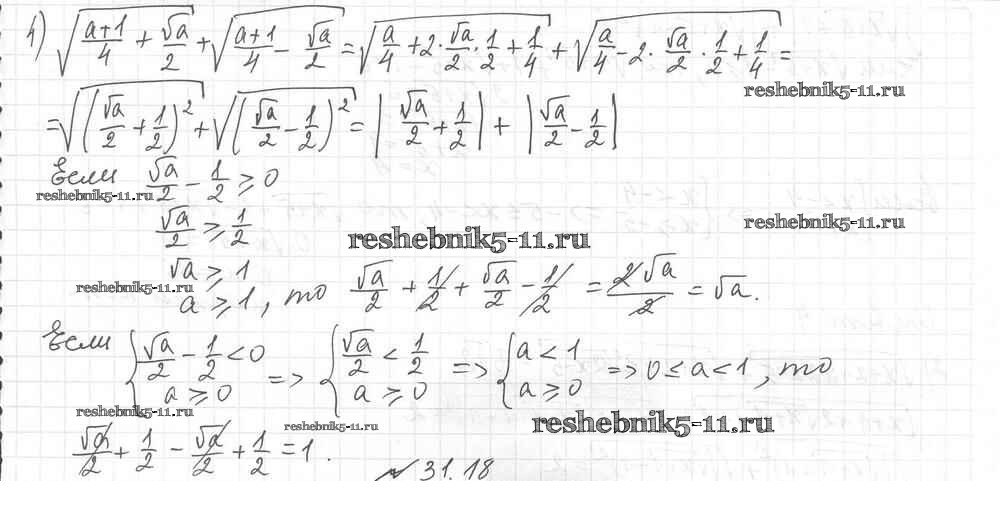 4) √((a+1)/4 + √a/2) + √((a+1)/4 - √a/2) = √(a/4 + 2·√a/2·1/2 + 1/4) + √(a/4 - 2·√a/2·1/2 + 1/4) =
reshebnik5-11.ru
= √((√a/2 + 1/2)²) + √((√a/2 - 1/2)²) = |√a/2 + 1/2| + |√a/2 - 1/2|
Если √a/2 - 1/2 ⩾ 0
reshebnik5-11.ru
√a/2 ⩾ 1/2
reshebnik5-11.ru
reshebnik5-11.ru
√a ⩾ 1
reshebnik5-11.ru
a ⩾ 1, то √a/2 + 1/2 + √a/2 - 1/2 = 2√a/2 = √a.
Если { √a/2 - 1/2 < 0 a ⩾ 0 => { √a/2 < 1/2 a ⩾ 0 => { a < 1 a ⩾ 0 => 0 ≤ a < 1, то
reshebnik5-11.ru
reshebnik5-11.ru
reshebnik5-11.ru
√a/2 + 1/2 - √a/2 + 1/2 = 1.
№ 31.18